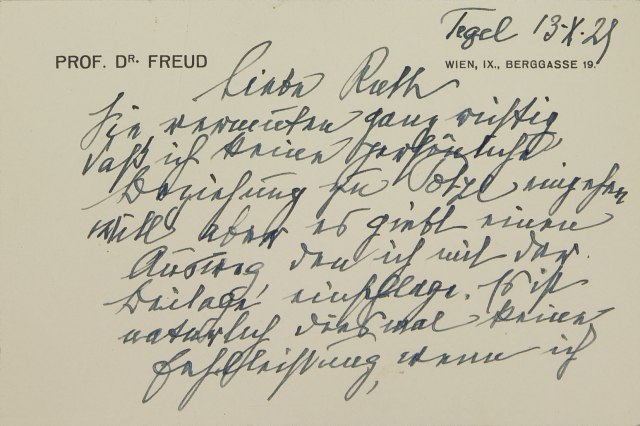 Tegel 13.X.29
PROF. DR. FREUD
WIEN, IX., BERGGASSE 19.
Liebe Ruth
Sie vermuten ganz richtig
daß ich keine persönliche
Beziehung zu Pötzl eingehen
will aber es giebt einen
Ausweg, den ich mit der
Beilage einschlage. Es ist
natürlich diesmal keine
Fehlleistung, wenn ich